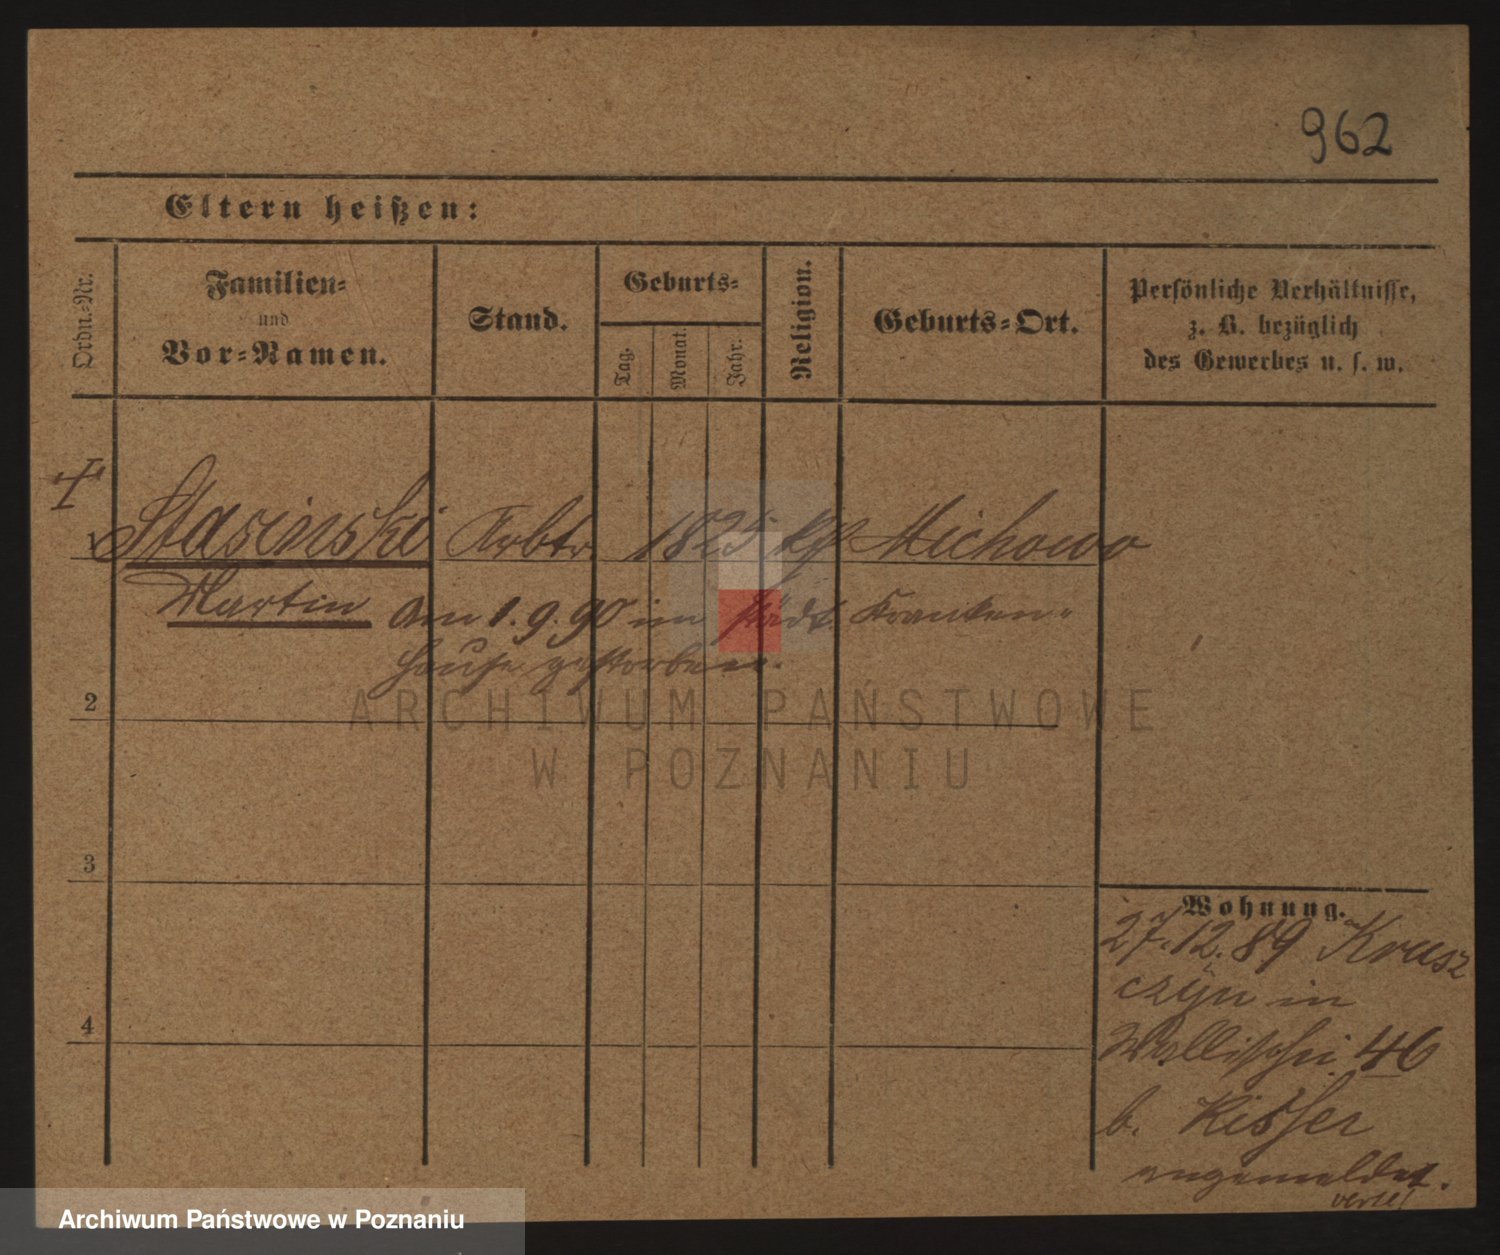 962
Eltern heißen:
Ordn.-Nr.
Familien-
und
Vor-Namen.
Stand.
Geburts-
Tag.
Monat.
Jahr.
Religion.
Geburts-Ort.
Persönliche Verhältnisse,
z. B. bezüglich
des Gewerbes u. s. w.
1 Stasinski Arbtr. 1825 kf Michowo
Martin am 1.9.90 im städt. Kranken-
hause gestorben.
2
3
4
Wohnung.
27.12.89 Krusz
czyn in
Wallischei 46
b. Kisser
angemeldet.
ARCHIWUM PAŃSTWOWE
W POZNANIU
Archiwum Państwowe w Poznaniu